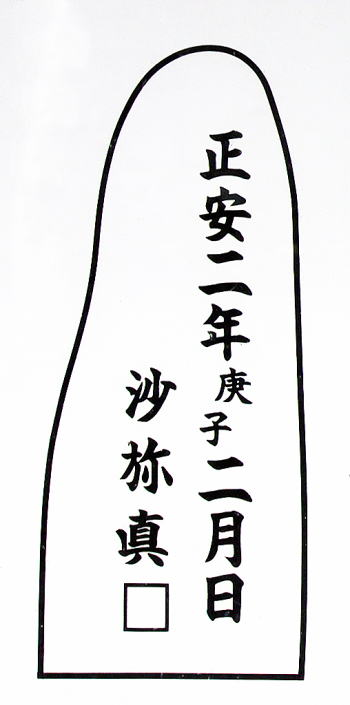 正安二年庚子二月日
沙弥真□